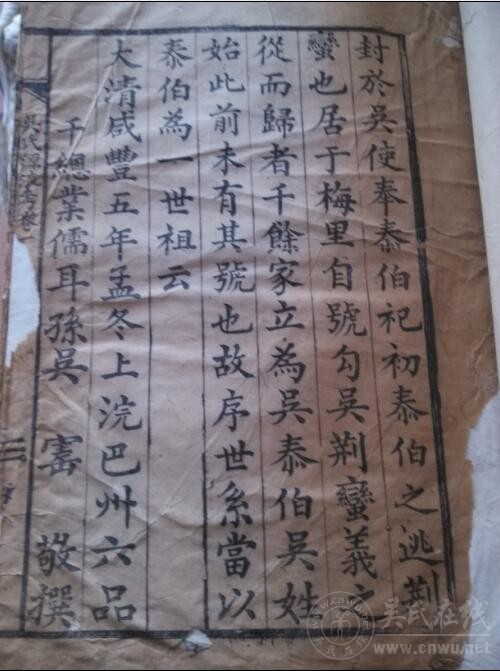 封於吳使奉泰伯祀初泰伯之逃荆
蠻也居于梅里自號勾吳荆蠻義之
從而歸者千餘家立為吳泰伯吳姓
始此前未有其號也故序世系當以
泰伯為一世祖云
大清咸豐五年孟冬上浣巴州六品
千總業儒耳孫吳 敬撰
吳氏
吴氏在线
www.cnwu.net